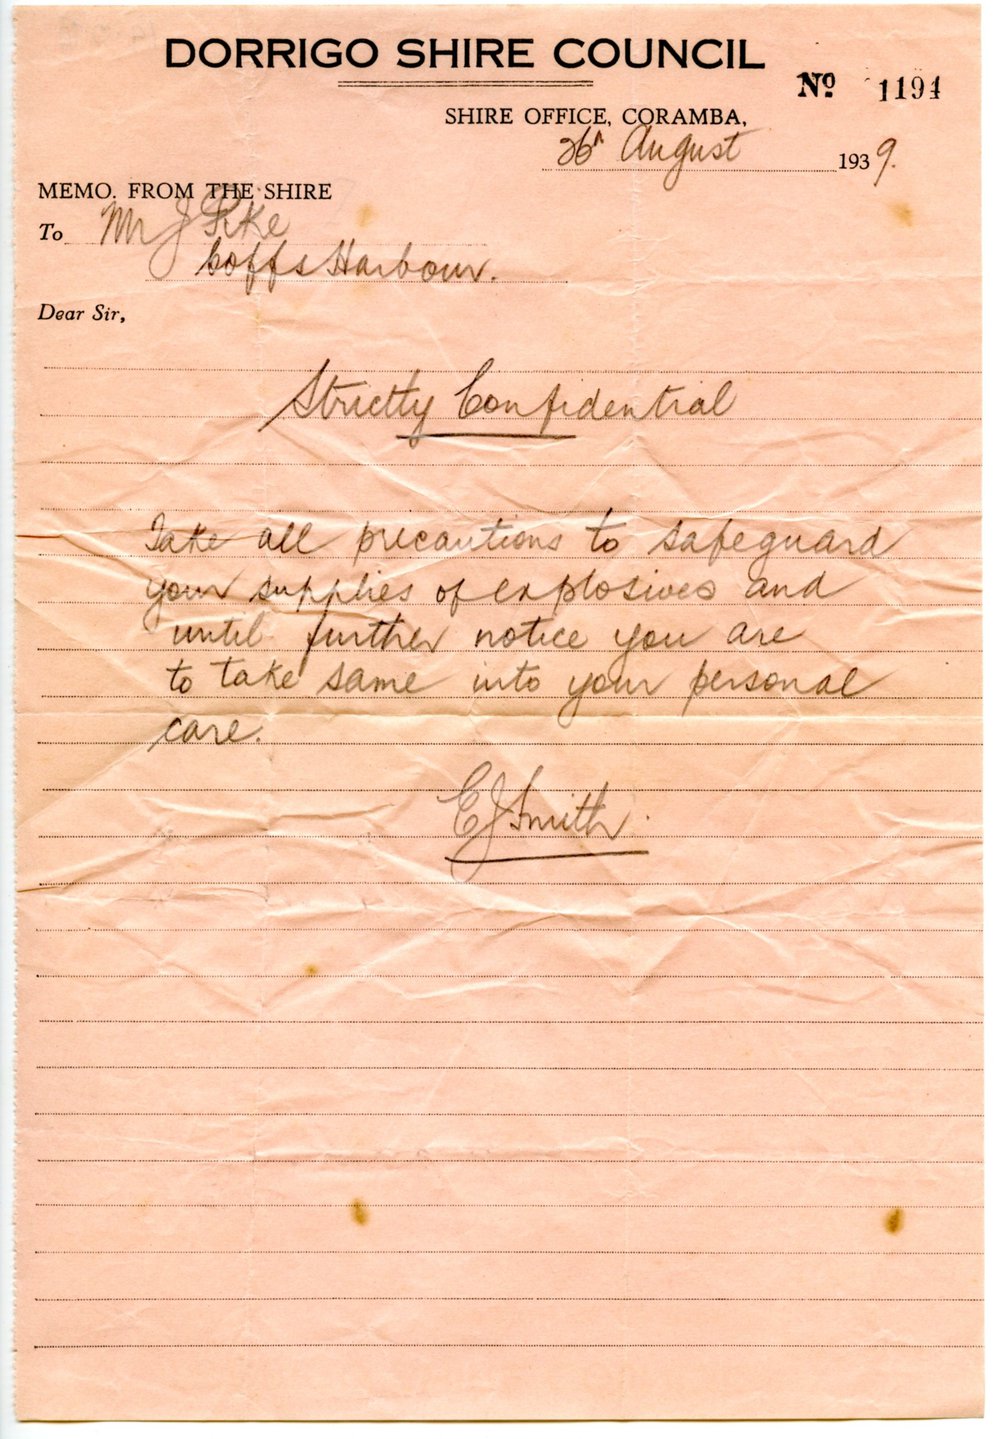 DORRIGO SHIRE COUNCIL
No. 1194
SHIRE OFFICE, CORAMBA,
26th August 1939.
MEMO. FROM THE SHIRE
To Mr J Pike
Coffs Harbour.
Dear Sir,
Strictly Confidential
Take all precautions to safeguard
your supplies of explosives and
until further notice you are
to take same into your personal
care.
E J Smith.